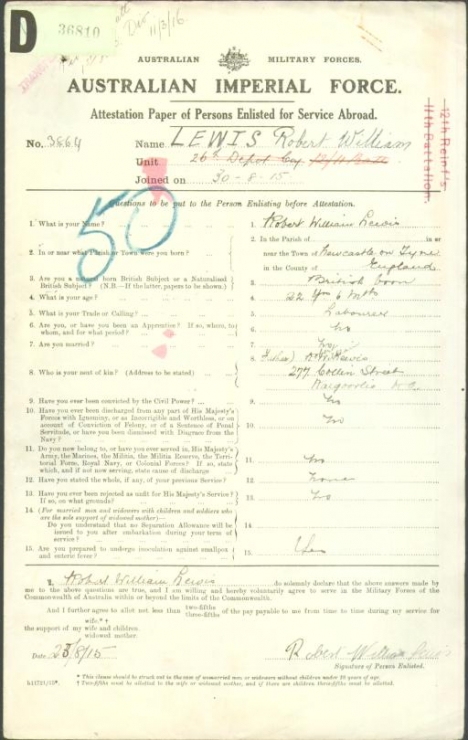 D
36810
11/3/16
AUSTRALIAN MILITARY FORCES.
AUSTRALIAN IMPERIAL FORCE.
Attestation Paper of Persons Enlisted for Service Abroad.
12th Reinf's
11th Battalion.
No. 3664 Name LEWIS Robert William
Unit 26th Depot Coy
Joined on 30-8-15
50
Questions to be put to the Person Enlisting before Attestation.
1. What is your Name? 1. Robert William Lewis
2. In or near what Parish or Town were you born? 2. In the Parish of in or
near the Town of Newcastle on Tyne
in the County of England
3. Are you a natural born British Subject or a Naturalised
British Subject? (N.B.—If the latter, papers to be shown.) 3. British born
4. What is your age? 4. 22 Yrs 6 Mths
5. What is your Trade or Calling? 5. Labourer
6. Are you, or have you been an Apprentice? If so, where, to
whom, and for what period? 6. No
7. Are you married? 7. No
8. Who is your next of kin? (Address to be stated) 8.
277 Collin Street
Kalgoorlie W.A.
9. Have you ever been convicted by the Civil Power? 9. No
10. Have you ever been discharged from any part of His Majesty's
Forces with Ignominy, or as Incorrigible and Worthless, or on
account of Conviction of Felony, or of a Sentence of Penal
Servitude, or have you been dismissed with Disgrace from the
Navy? 10. No
11. Do you now belong to, or have you ever served in, His Majesty's
Army, the Marines, the Militia, the Militia Reserve, the Terri-
torial Force, Royal Navy, or Colonial Forces? If so, state
which, and if not now serving, state cause of discharge 11. No
12. Have you stated the whole, if any, of your previous Service? 12.
13. Have you ever been rejected as unfit for His Majesty's Service?
If so, on what grounds? 13. No
14. (For married men and widowers with children and soldiers who
are the sole support of widowed mother)—
Do you understand that no Separation Allowance will be
issued to you after embarkation during your term of
service? 14.
15. Are you prepared to undergo inoculation against smallpox
and enteric fever? 15. Yes
I, Robert William Lewis do solemnly declare that the above answers made by
me to the above questions are true, and I am willing and hereby voluntarily agree to serve in the Military Forces of the
Commonwealth of Australia within or beyond the limits of the Commonwealth.
And I further agree to allot not less than two-fifths
three-fifths of the pay payable to me from time to time during my service for
wife.* †
the support of my wife and children.
widowed mother.
Date 23/8/15 Robert William Lewis
Signature of Person Enlisted.
* This clause should be struck out in the case of unmarried men or widowers without children under 18 years of age.
† Two-fifths must be allotted to the wife or widowed mother, and if there are children three-fifths must be allotted.